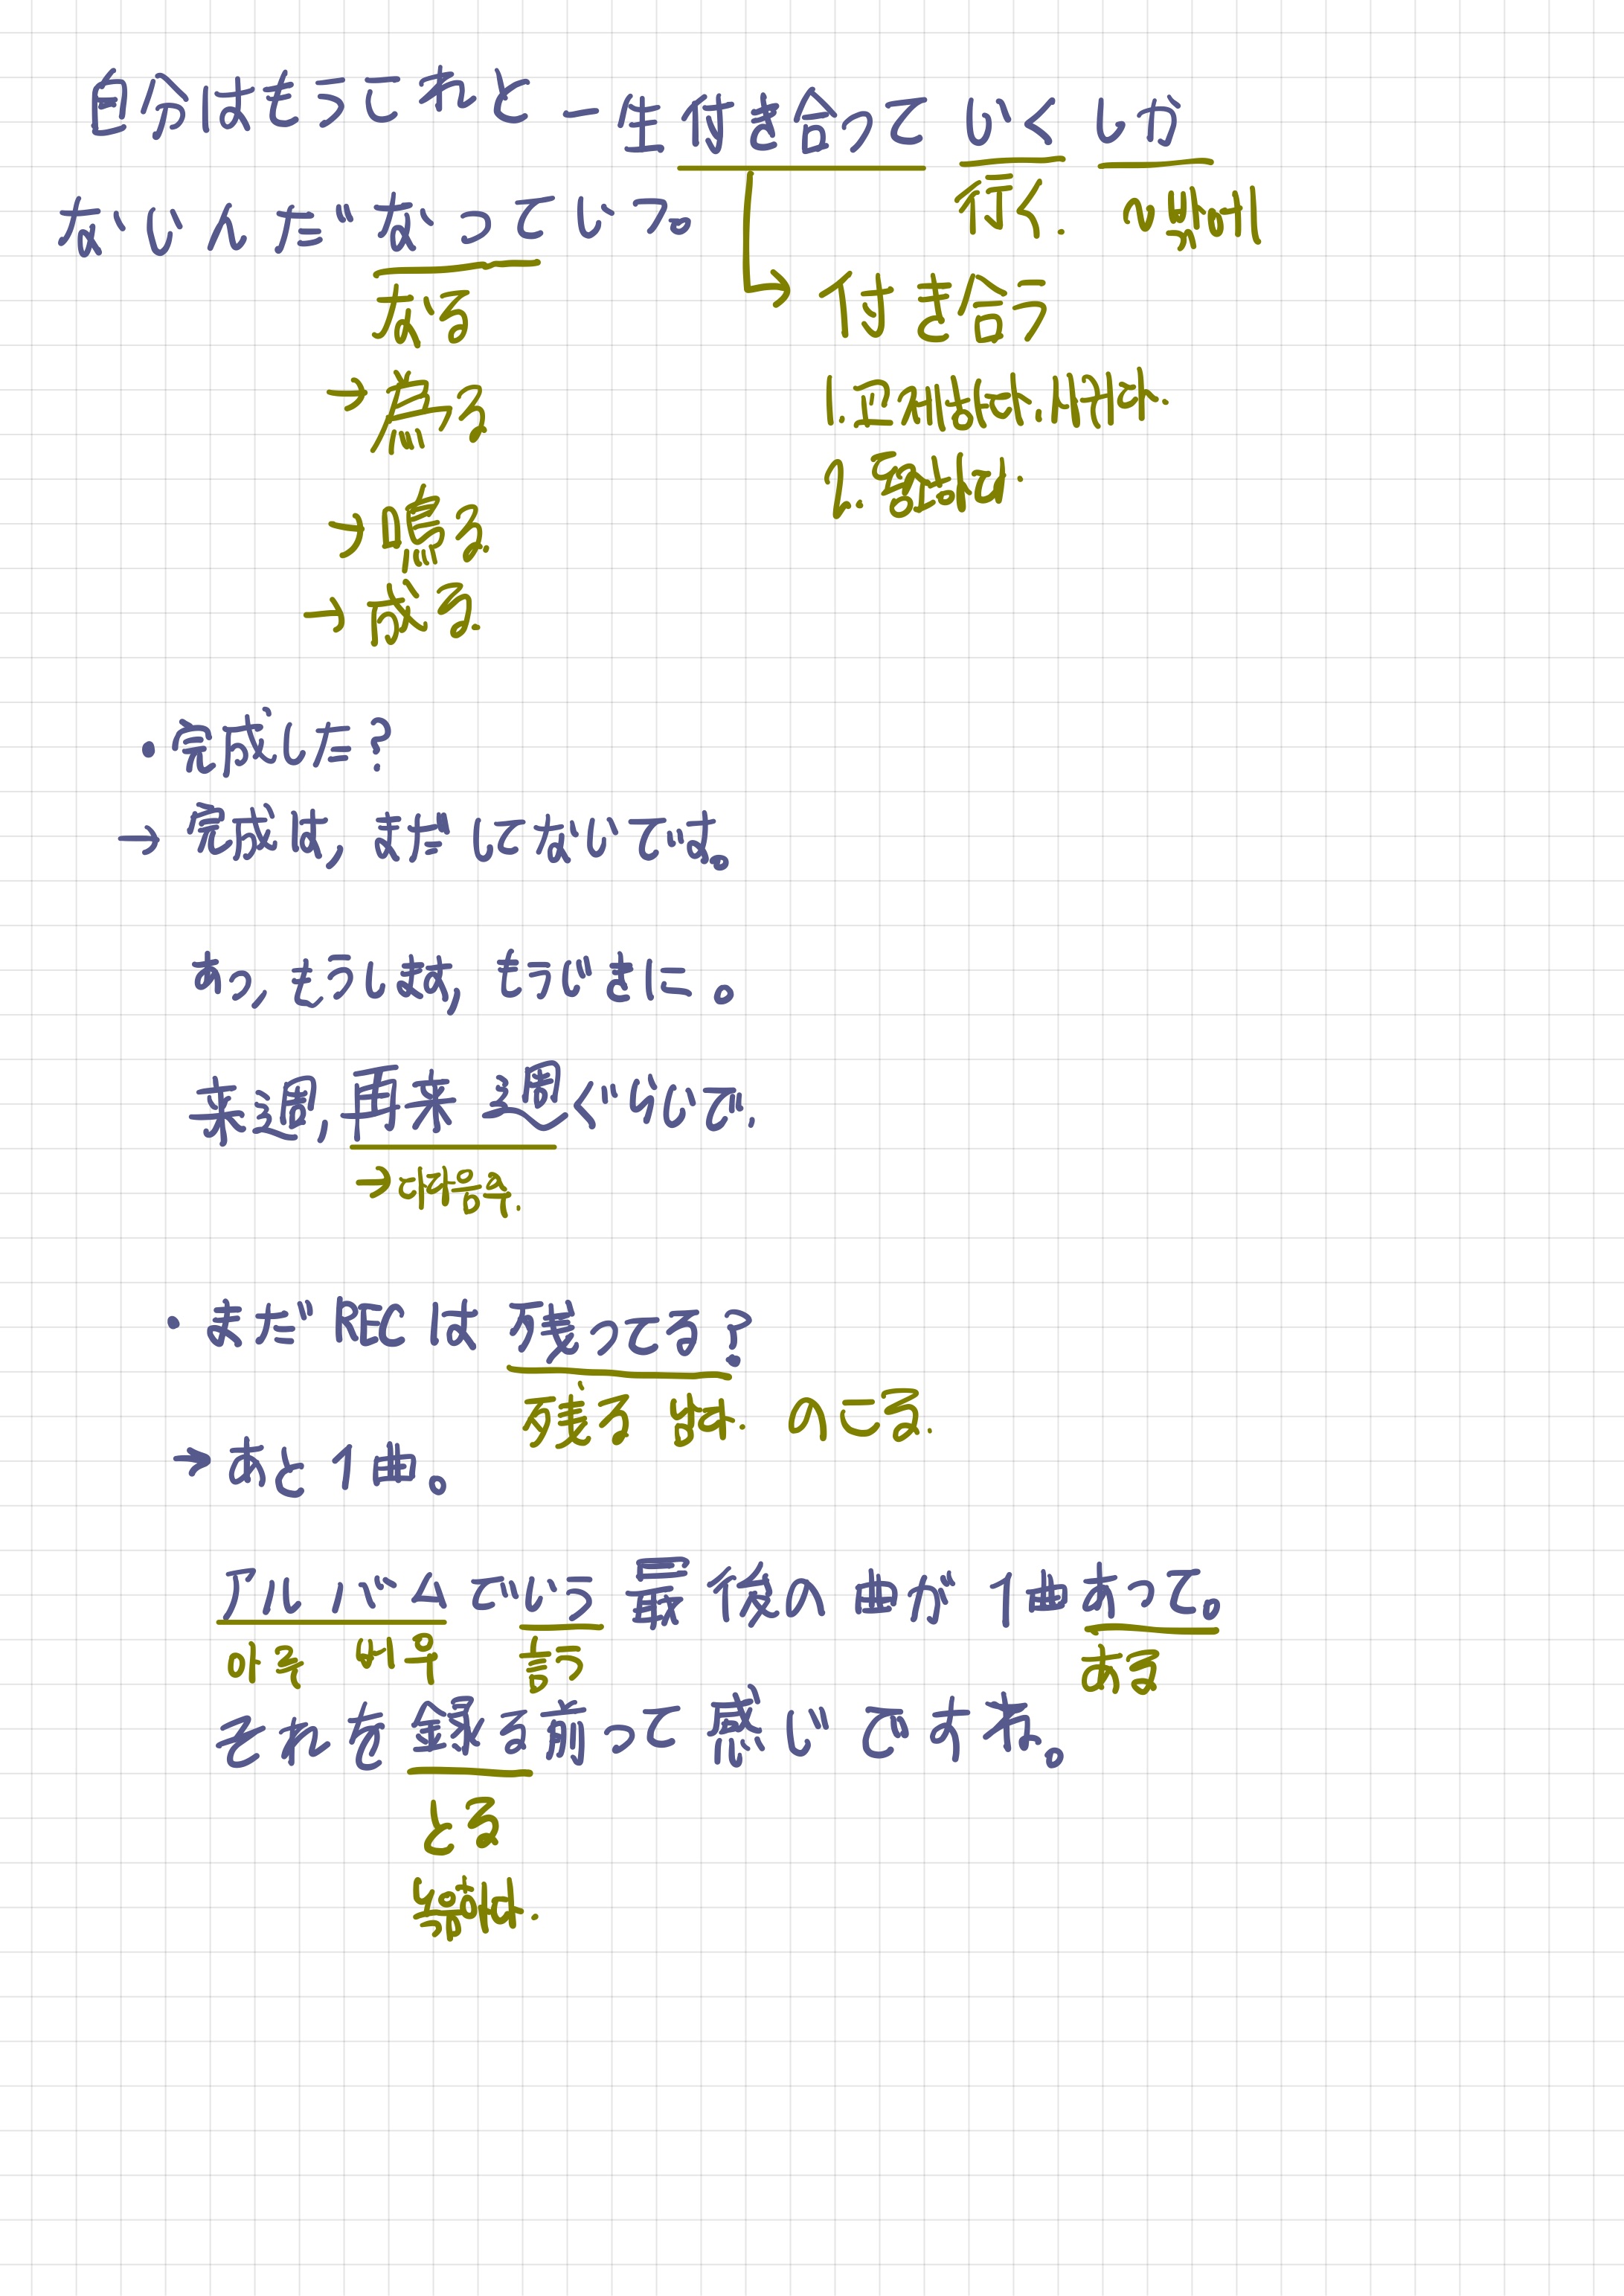 自分はもうこれと一生付き合って いく しか
行く. ~밖에
ないんだなっていつ。
なる
→ 為る
→ 鳴る.
→ 成る.
付き合う
1. 교제하다. 사귀다.
2. 동행하다.
・完成した?
→ 完成は, まだしてないです。
あっ, もうします, もうじきに。
来週, 再来週ぐらいで.
→ 다다음주.
・まだRECは残ってる?
残る 남다. のこる.
→ あと1曲。
アルバムでいう最後の曲が1曲あって。
아루 바무 言う ある
それを録る前って感じですね。
とる
녹음하다.